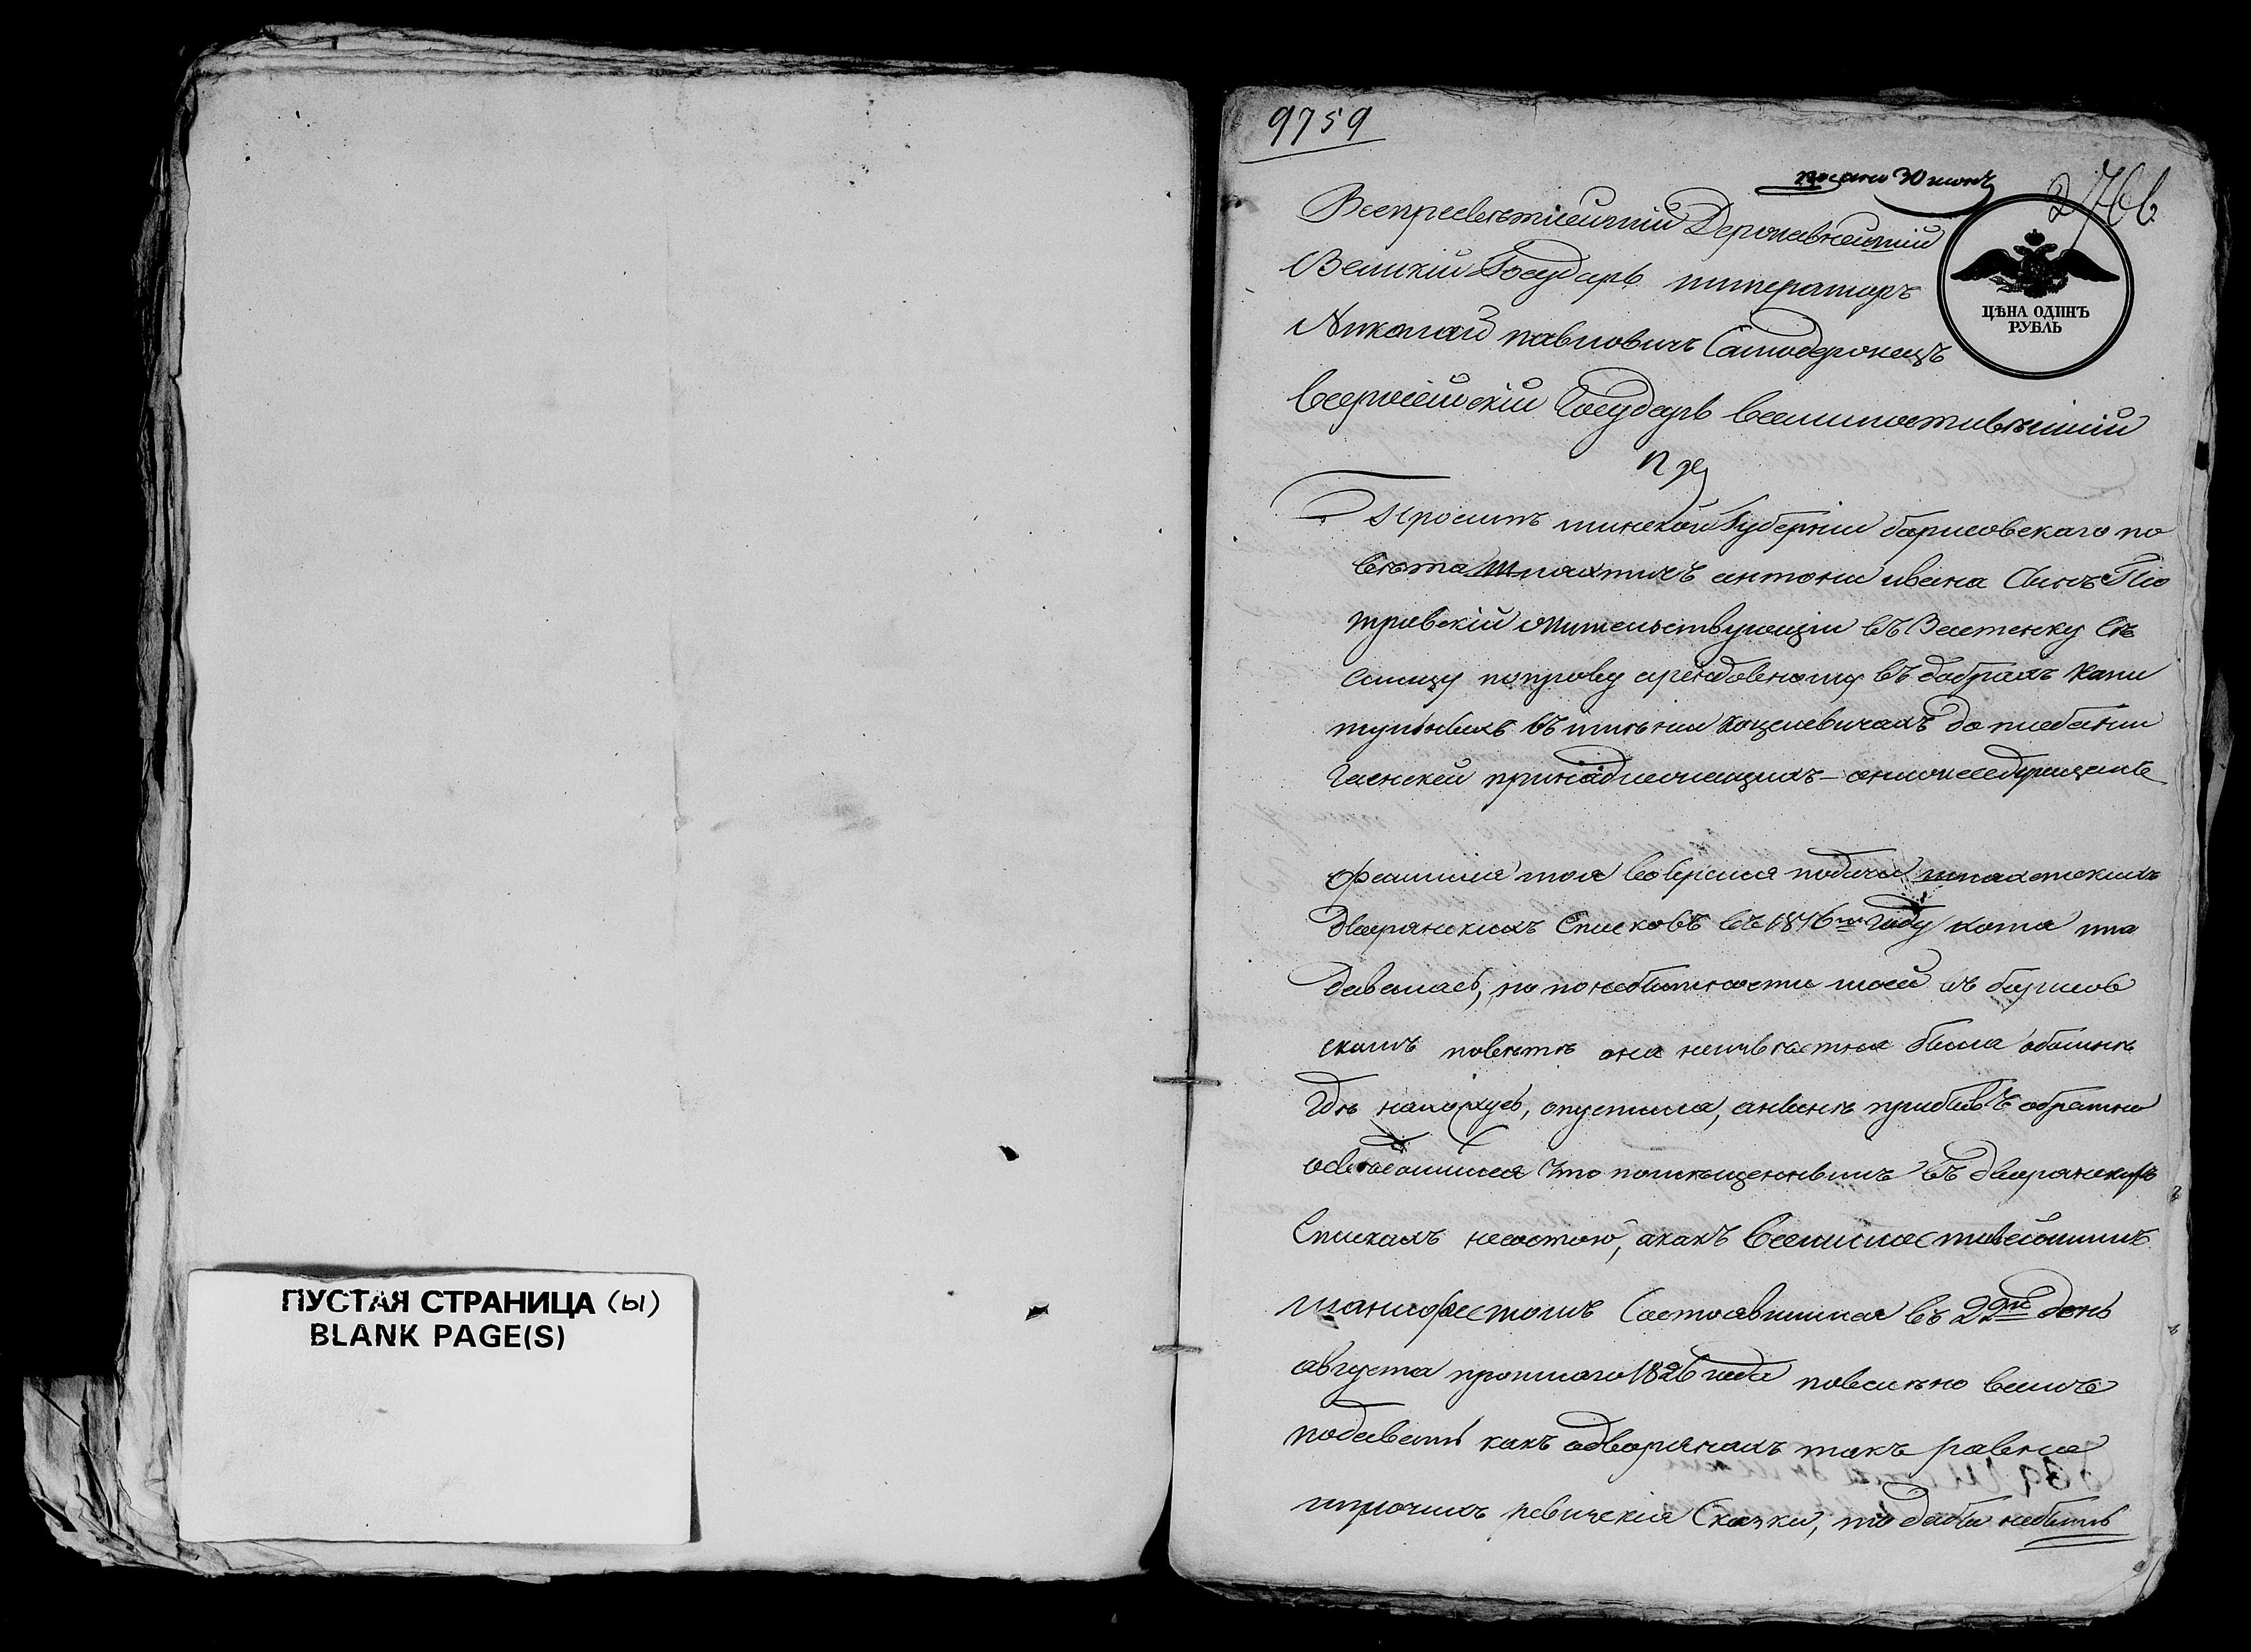 ПУСТАЯ СТРАНИЦА (ы)
BLANK PAGE(S)
9759
276
ЦѢНА ОДИНЪ
РУБЛЬ
Всепресветлейший Державнейший
Великий Государь император
Николай павловичъ Самодержецъ
всеросийский Государь всемилостивейший
Проситъ минской Губернии борисовскаго по
вета шляхтичъ антони ивана Сынъ Пио
тровский жительствующии въ
по праву арендовному въ добрахъ капи
тульныхъ въ имении до плебании
Гаенской принадлежащихъ
Фамилия моя во время подачи шляхетскихъ
дворянскихъ Списковъ въ 1816мъ Году хотя
давалась, но по небытности моей въ борисов
скомъ повете она неизвестна была
где нахожусь, опустила, а ныне прибывъ обратно
что помещеннымъ въ дворянскихъ
Спискахъ несостою, а какъ Всемилостивейшимъ
манифестомъ Состоявшимся въ 22й день
августа прошлаго 1826 года повелено
подавать какъ о дворянахъ такъ равно
и прочихъ ревижския Сказки, то дабы небыть